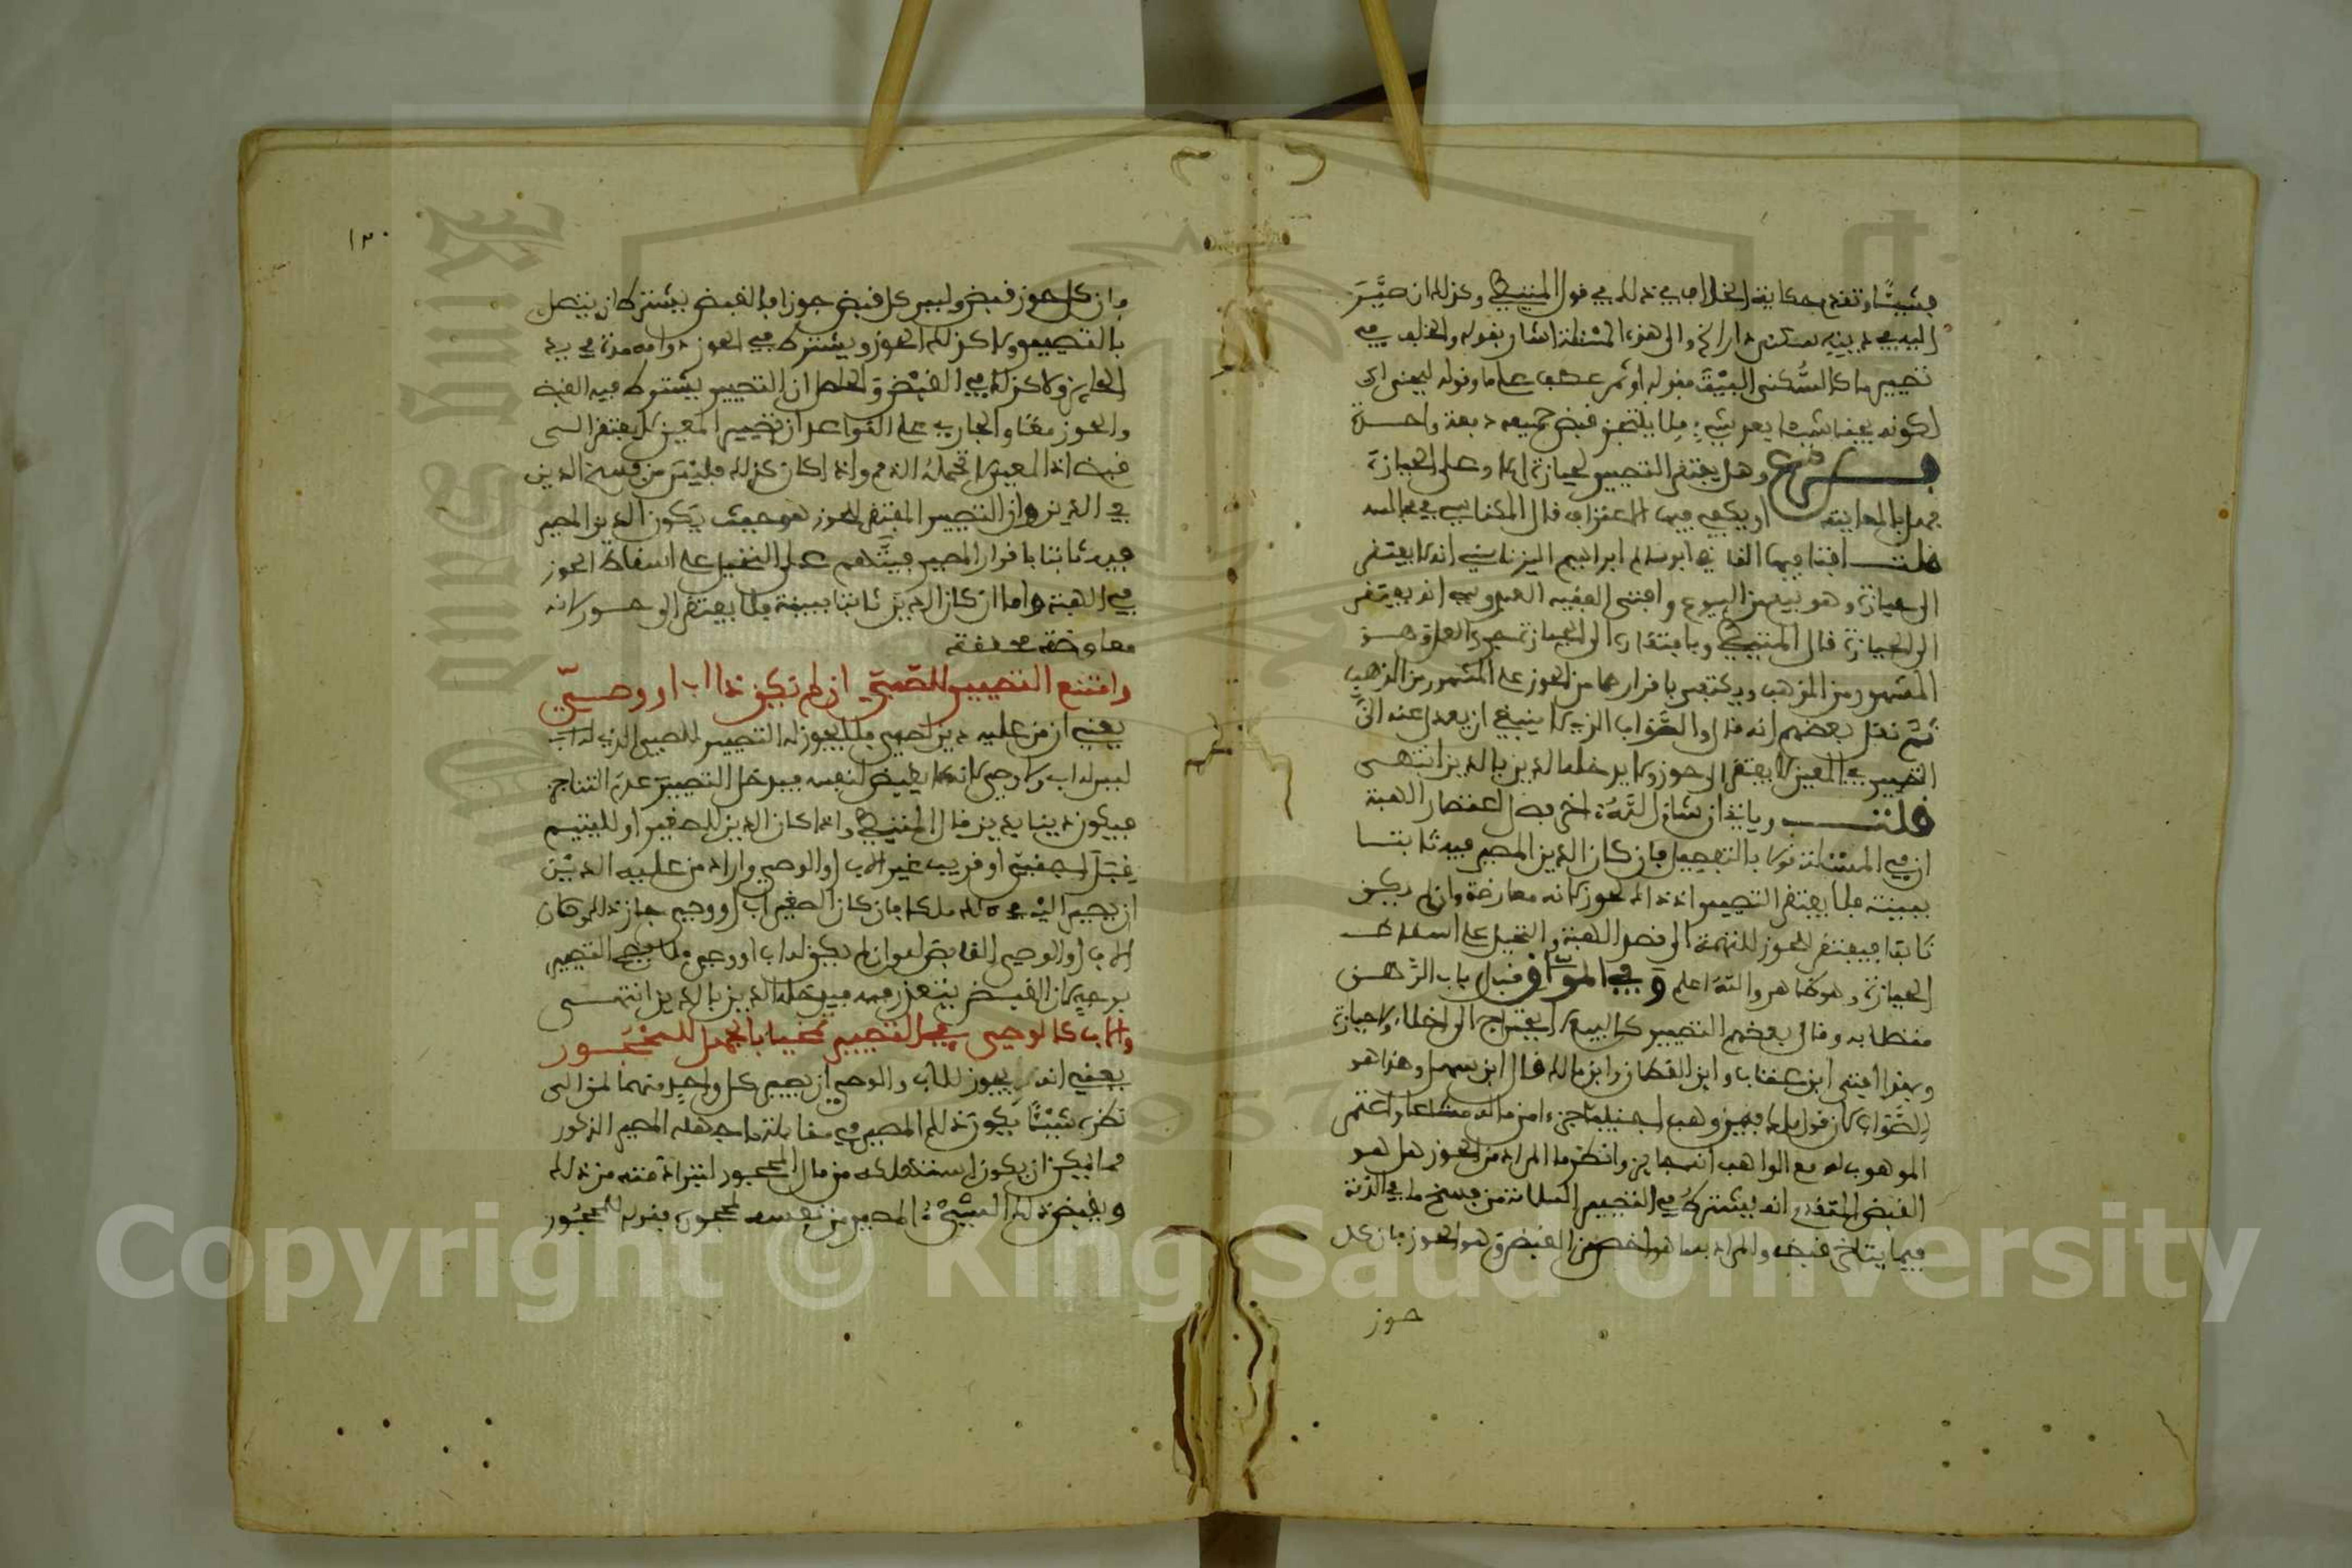 فشيئا وتقدم حكاية الخلاف في ذلك في قول المنتيطي وكذلك ان صير
اليه في دينه سكنى دار الخ والى هذه المسئلة اشار بقوله والخلف في
تصيير ما كالسكنى البيت فقوله او ثمر عطف على ما وقوله ليجنى اي
لكونه يجنى شيئا بعد شيء فلا يتنجز قبض جميعه دفعة واحدة
فرع وهل يفتقر التصيير لحيازة ام لا وعلى الحيازة
فهل بالمعاينة او يكفي فيها الاعتراف قال المكناسي في مجالسه
قلت افتا فيها القاضي ابو سالم ابراهيم اليزناسني انه لا يفتقر
الى حيازة وهو بيع من البيوع وافتى الفقيه العبدوسي انه يفتقر
الى الحيازة قال المتيطي وبافتقاره الى الحيازة جرى العمل وهو
المشهور من المذهب ويكتفى باقرارهما من الحوز على المشهور من المذهب
ثم نقل بعضهم انه قال والصواب الذي لا ينبغي ان يعدل عنه ان
التصيير في المعين لا يفتقر الى حوز ولا يدخله الدين بالدين انتهى
قلت وياتي ان شاء الله اخر فصل اعتصار الهبة
ان في المسئلة قولا بالتفصيل فان كان الدين المصير فيه ثابتا
ببينة فلا يفتقر التصيير اذ ذاك لحوز لانه معاوضة وان لم يكن
ثابتا فيفتقر للحوز للتهمة الى قصد الهبة والتحيل على اسقاط
الحيازة وهو ظاهر والله اعلم وفي المواق قبل باب الرهن
ما نصه وقال بعضهم التصيير كالبيع لا يفتقر الى اخلاء ولا حيازة
وبهذا افتى ابن عتاب وابن القطان وابن مالك قال ابن سهل وهذا هو
الصواب لان قول مالك فيمن وهب اجنبيا جزءا من ماله مشاعا واعتمر
الموهوب له مع الواهب انها حيازة وانظر ما المراد من الحوز هل هو
القبض المتقدم انه يشترط في التصيير للسلامة من فسخ ما في الذمة
فيما يتاخر قبضه والمراد به ما هو اخص من القبض وهو الحوز فان كل
حوز
١٢٠
فان كل حوز قبض وليس كل قبض حوزا فالقبض يشترط ان يتصل
بالتصيير ولا كذلك الحوز ويشترط في الحوز دوامه مدة في يد
الحائز ولا كذلك في القبض والحاصل ان التصيير يشترط فيه القبض
والحوز معا والجاري على القواعد ان تصيير المعين لا يفتقر الى
قبض اذ المعين لا تحمله الذمم واذا كان كذلك فليس من فسخ الدين
في الدين وان التصيير المفتقر للحوز هو حيث يكون الدين المصير
فيه ثابتا باقرار المصير فيتهم على التحيل على اسقاط الحوز
في الهبة واما ان كان الدين ثابتا ببينة فلا يفتقر الى حوز لانه
معاوضة محققة
وامتنع التصيير للصبي ان لم يكن ذا اب او وصي
يعني ان من عليه دين لصبي فلا يجوز له التصيير للصبي الذي
ليس له اب ولا وصي لانه لا يقبض لنفسه فيدخل التصيير عدم التناجز
فيكون دينا بدين قال المتيطي واذا كان الدين للصغير او لليتيم
قبل اجنبي او قريب غير الاب او الوصي واراد من عليه الدين
ان يصير اليه في ذلك ملكا فان كان للصغير اب او وصي جاز ذلك وكان
الاب او الوصي القابض له وان لم يكن له اب او وصي فلا يصح التصيير
بوجه لان القبض يتعذر فيه فيدخله الدين بالدين انتهى
والاب كالوصي في التصيير تمخيا بالجهل للمحجور
يعني انه يجوز للاب والوصي ان يصير كل واحد منهما لمن الى
نظره شيئا يكون ذلك المصير في مقابلة ما جهله المصير المذكور
مما يمكن ان يكون استهلكه من مال المحجور لتبرا ذمته من ذلك
ويقبض ذلك الشيء المصير من نفسه لمحجوره فقوله للمحجور
Copyright © King Saud University
King Saud University
1957